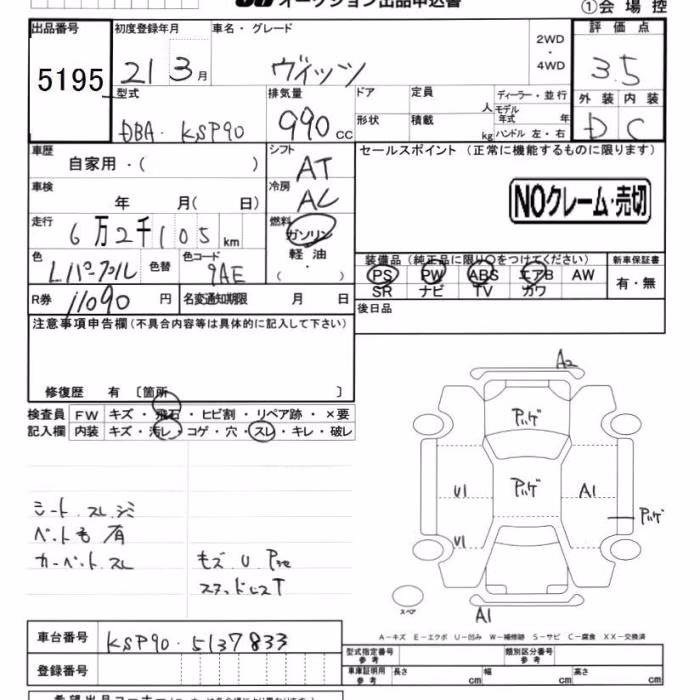 オークション出品申込書
①会場控
出品番号
5195
初度登録年月
21 3月
車名・グレード
ヴィッツ
2WD
・
4WD
評価点
3.5
外装 内装
D C
型式
DBA・KSP90
排気量
990cc
ドア
定員
人
形状
積載
kg
ディーラー・並行
モデル年式 年
ハンドル 左・右
車歴
自家用・( )
シフト
AT
セールスポイント (正常に機能するものに限ります)
NOクレーム・売切
車検
年 月( 日)
冷房
AC
走行
6万2千105km
燃料
ガソリン
軽油
・
( )
色
L.パープル
色替
色コード
9AE
装備品 (純正品に限り○をつけてください)
PS PW ABS エアB AW
SR ナビ TV カワ
新車保証書
有・無
R券 11090円
名変通知期限 月 日
後日品
注意事項申告欄(不具合内容等は具体的に記入して下さい)
修復歴 有 〔箇所 〕
検査員記入欄
FW キズ・飛石・ヒビ割・リペア跡・×要
内装 キズ・汚レ・コゲ・穴・スレ・キレ・破レ
シート スレ.シミ
ペットも 有
カーペット スレ
モズ U
スタッドレスT
A2
アハゲ
U1
アハゲ
A1
アハゲ
U1
A1
スペア
A－キズ E－エクボ U－凹み W－補修跡 S－サビ C－腐食 XX－交換済
車台番号 KSP90・5137833
登録番号
型式指定番号 参考
類別区分番号 参考
車庫証明用 参考
長さ cm
幅 cm
高さ cm